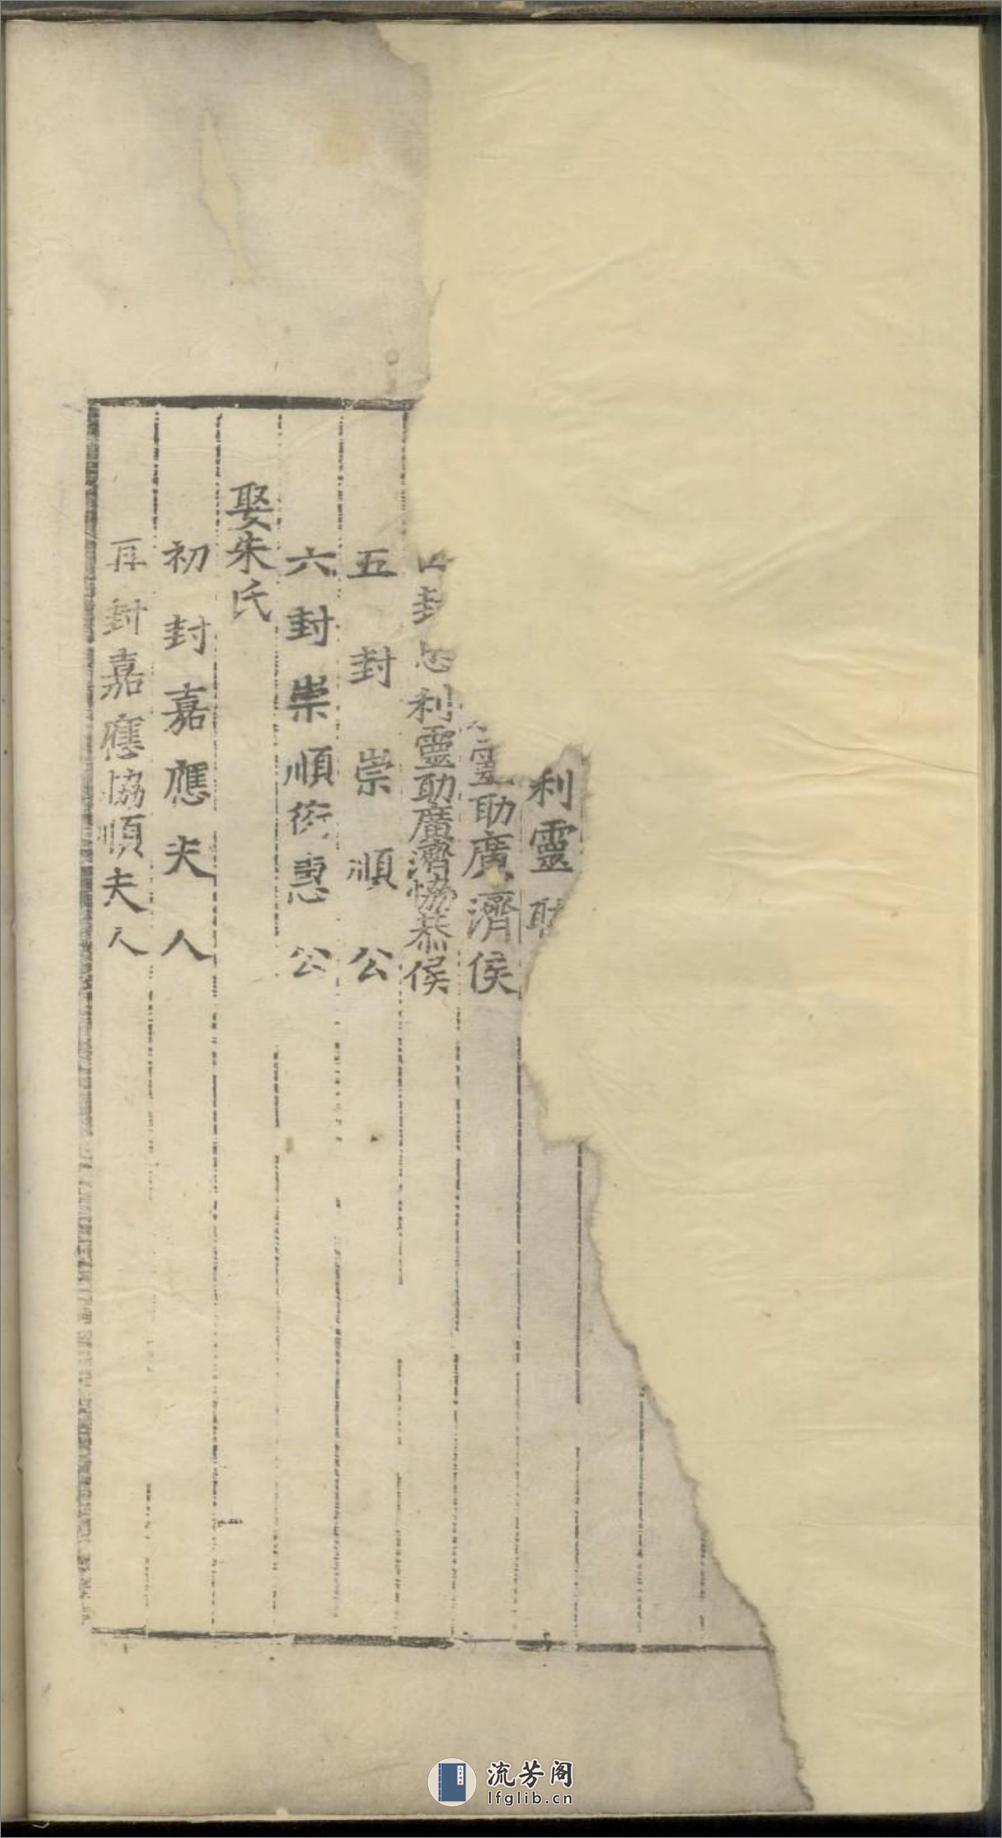 利靈
靈助廣濟侯
封忠利靈助廣濟協恭侯
五封崇順公
六封崇順衍惠公
娶朱氏
初封嘉應夫人
再封嘉應協順夫人
流芳阁
lfglib.cn